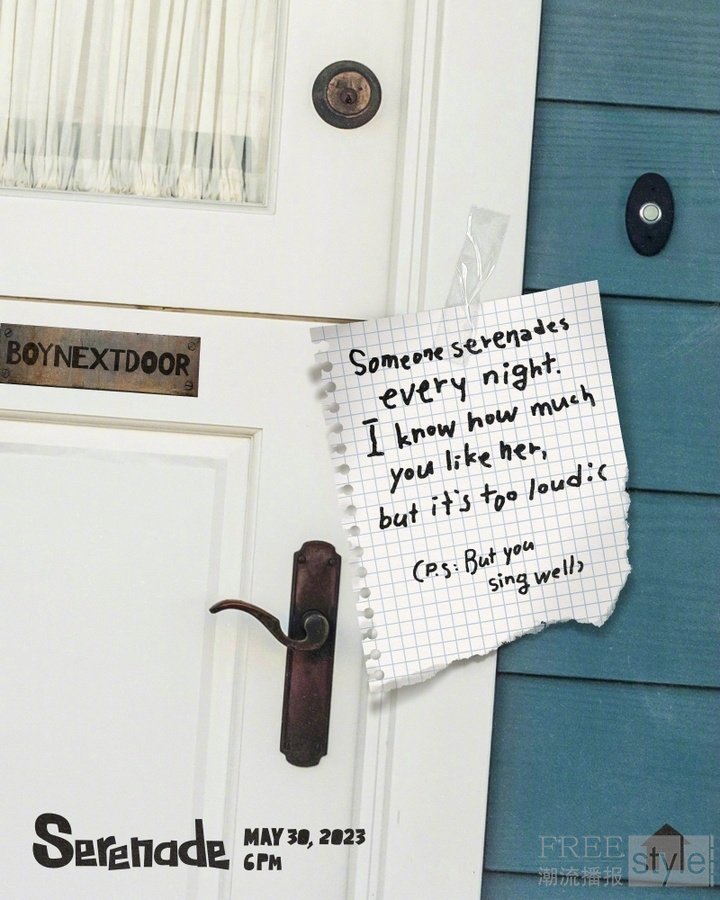 BOYNEXTDOOR
Someone serenades
every night.
I know how much
you like her,
but it's too loud:(
(P.S: But you
sing well)
Serenade
MAY 30, 2023
6PM
FREE
style
潮流播报